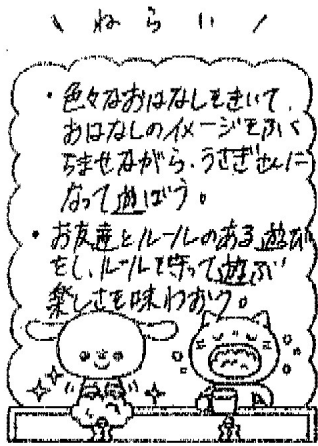 ねらい
・色々なおはなしをきいて、
おはなしのイメージをふく
らませながら、うさぎさんに
なって遊ぼう。
・お友達とルールのある遊び
をし、ルールを守って遊ぶ
楽しさを味わおう。